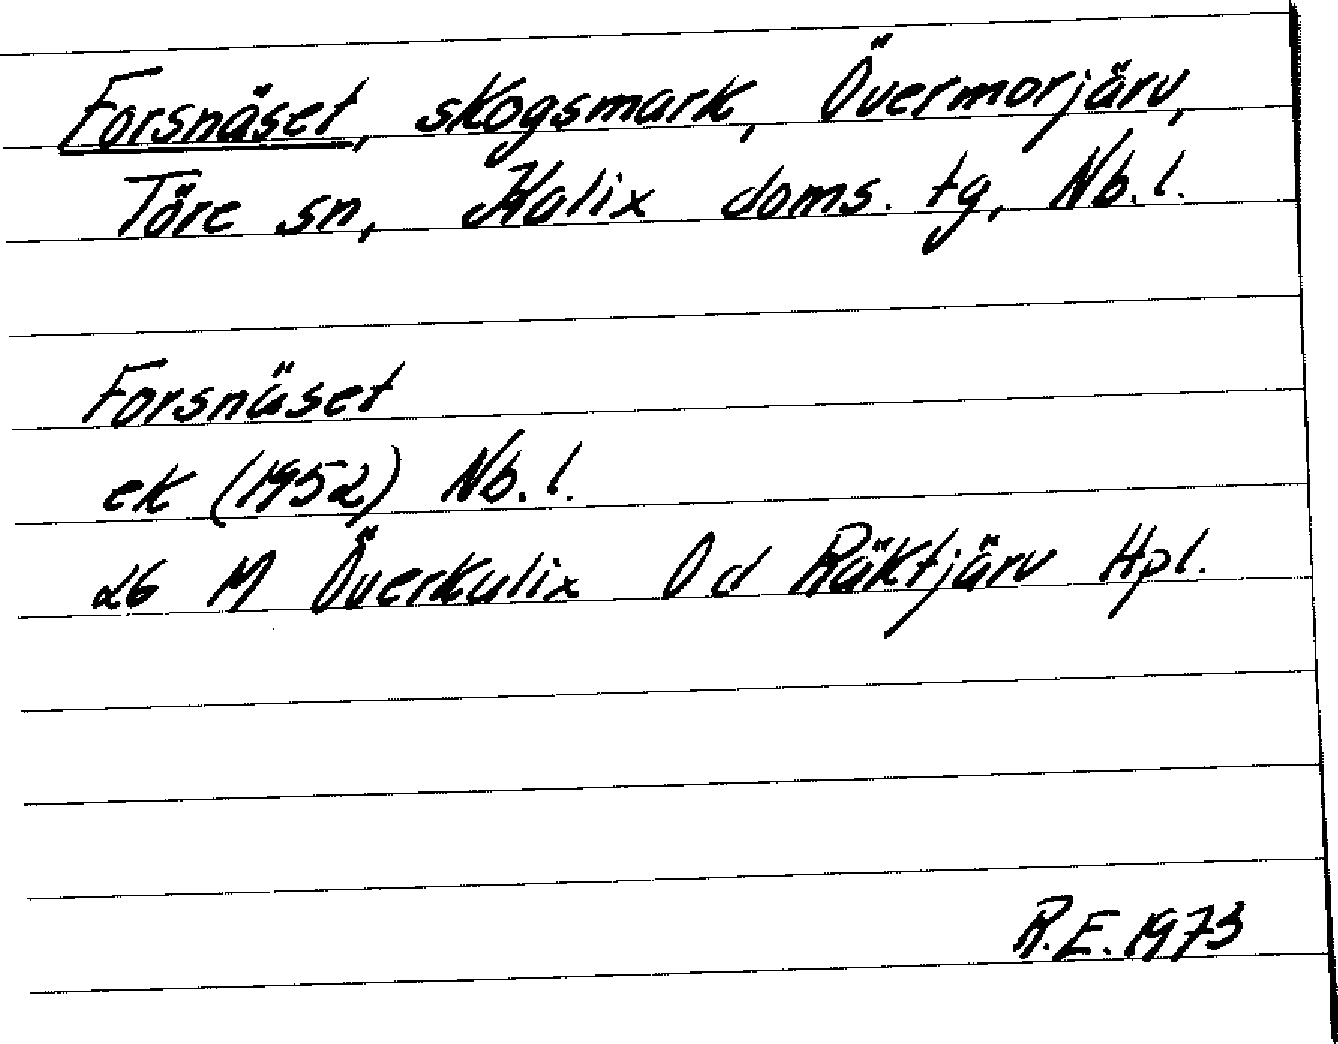 Forsnäset, skogsmark, Övermorjärv,
Töre sn, Kalix doms. tg, Nb. l.
Forsnäset
ek (1952) Nb. l.
26 M Överkalix 0 d Räktjärv Hpl.
R.E. 1973